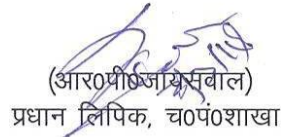 (आर0पी0जायसवाल)
प्रधान लिपिक, च0पं0शाखा